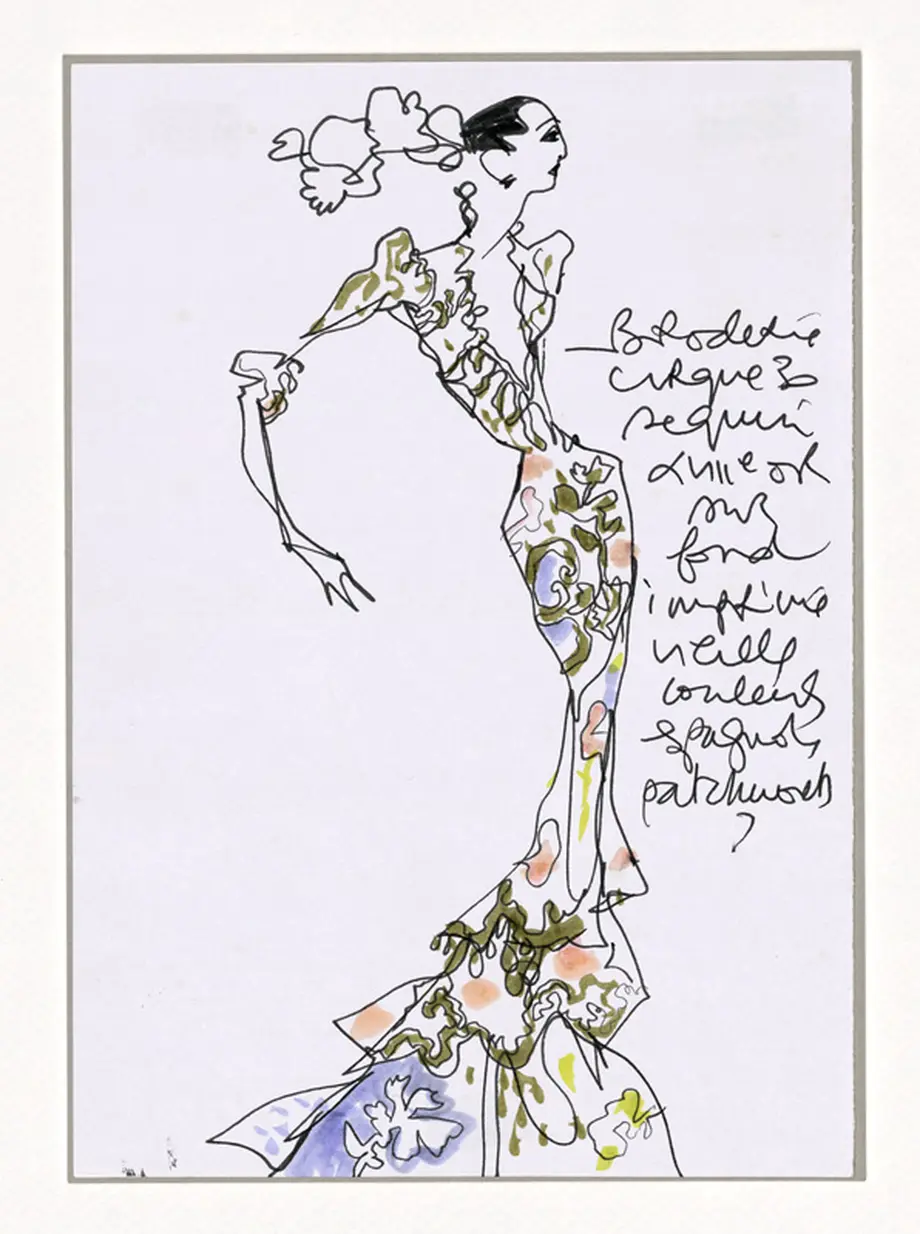 Broderie
cirque 30
sequin
lune or
sur
fond
imprimé
vieilles
couleurs
espagnoles
patchwork
?